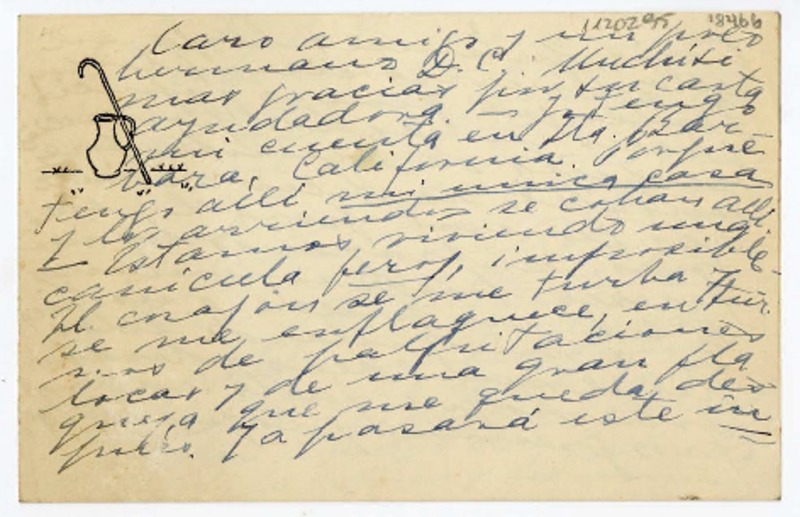 1120295 18466
Caro amigo y un poco
hermano D. C. Muchísi
mas gracias por su carta
ayudadora. — Yo tengo
mi cuenta en Sta. Bár-
bara, California. Porque
tengo allí mi única casa
y los arriendos se cobran allí.
Estamos viviendo una
canícula feroz, imposible.
El corazón se me turba y
se me enflaquece, en tur-
nos de palpitaciones
locas y de una gran fla
queza que me queda des
pués. Ya pasará este in